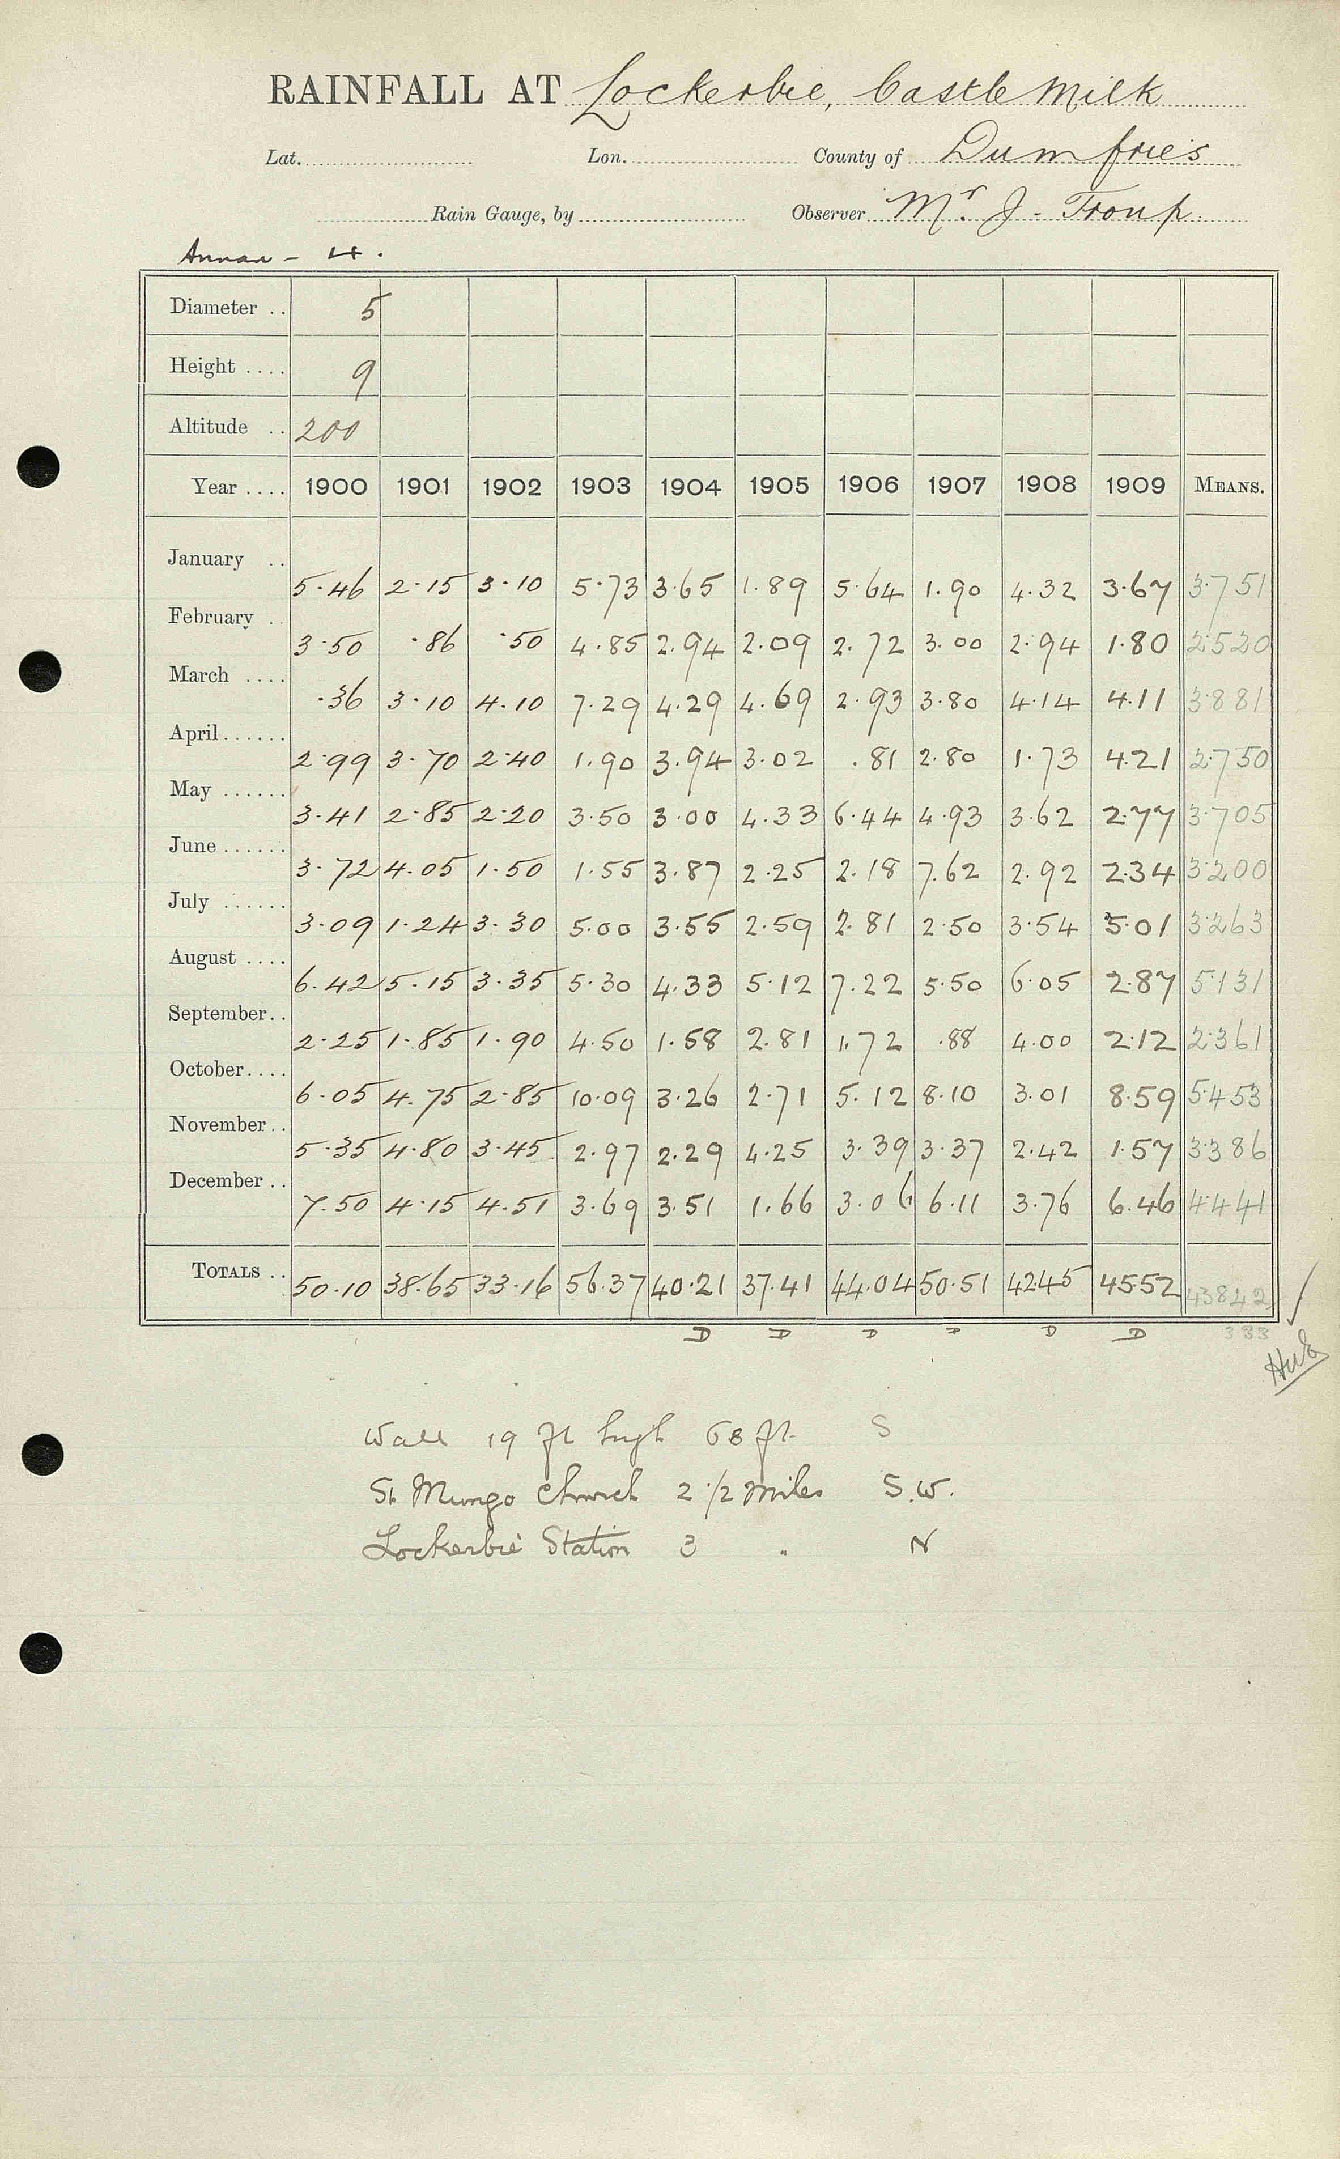 RAINFALL AT Lockerbie, Castle Milk
Lat. Lon. County of Dumfries
Rain Gauge, by Observer Mr. J. Troup.
Annan - 4.
Diameter .. 5
Height .... 9
Altitude .. 200
Year .... 1900 1901 1902 1903 1904 1905 1906 1907 1908 1909 MEANS.
January .. 5.46 2.15 3.10 5.73 3.65 1.89 5.64 1.90 4.32 3.67 3.751
February . 3.50 .86 .50 4.85 2.94 2.09 2.72 3.00 2.94 1.80 2.520
March .... .36 3.10 4.10 7.29 4.29 4.69 2.93 3.80 4.14 4.11 3.881
April...... 2.99 3.70 2.40 1.90 3.94 3.02 .81 2.80 1.73 4.21 2.750
May ...... 3.41 2.85 2.20 3.50 3.00 4.33 6.44 4.93 3.62 2.77 3.705
June ...... 3.72 4.05 1.50 1.55 3.87 2.25 2.18 7.62 2.92 2.34 3.200
July ...... 3.09 1.24 3.30 5.00 3.55 2.59 2.81 2.50 3.54 5.01 3.263
August .... 6.42 5.15 3.35 5.30 4.33 5.12 7.22 5.50 6.05 2.87 5.131
September.. 2.25 1.85 1.90 4.50 1.58 2.81 1.72 .88 4.00 2.12 2.361
October.... 6.05 4.75 2.85 10.09 3.26 2.71 5.12 8.10 3.01 8.59 5.453
November.. 5.35 4.80 3.45 2.97 2.29 4.25 3.39 3.37 2.42 1.57 3.386
December .. 7.50 4.15 4.51 3.69 3.51 1.66 3.06 6.11 3.76 6.46 4.441
TOTALS .. 50.10 38.65 33.16 56.37 40.21 37.41 44.04 50.51 42.45 45.52 43842
D D D D D D 383
Wall 19 ft high 68 ft. S
St Mungo Church 2 1/2 miles S.W.
Lockerbie Station 3 " N